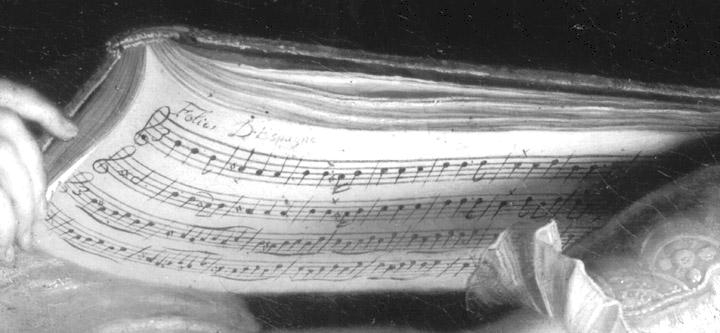 Folies D'espagne